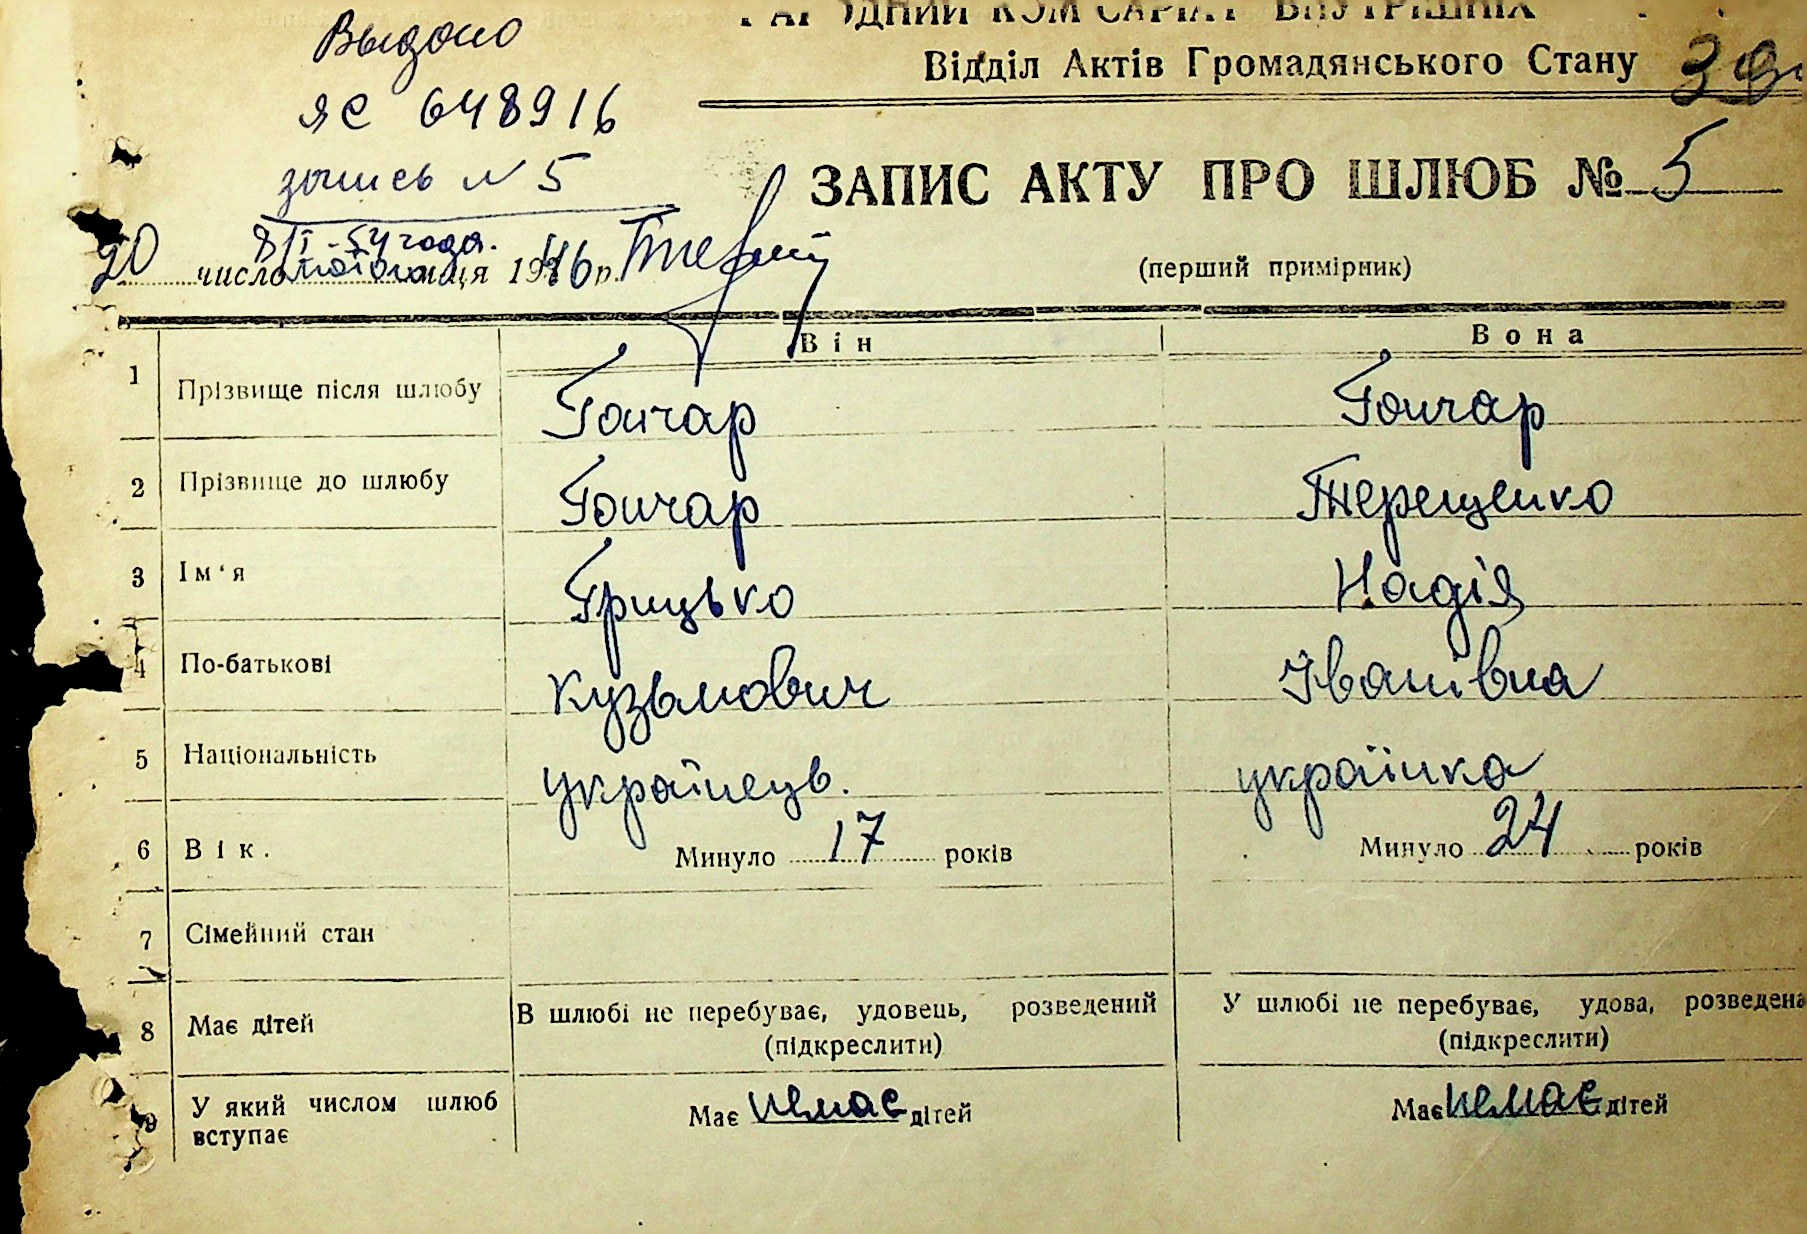 Выдано
ЯС 648916
запись N 5
8/II-54 года.
НАРОДНИЙ КОМІСАРІАТ ВНУТРІШНІХ
Відділ Актів Громадянського Стану
39
ЗАПИС АКТУ ПРО ШЛЮБ № 5
20 число лютого місяця 1946 р.
(перший примірник)
Він Вона
1 Прізвище після шлюбу Гончар Гончар
2 Прізвище до шлюбу Гончар Терещенко
3 Ім'я Грицько Надія
4 По-батькові Кузьмович Іванівна
5 Національність українець. українка
6 Вік. Минуло 17 років Минуло 24 років
7 Сімейний стан
8 Має дітей В шлюбі не перебуває, удовець, розведений У шлюбі не перебуває, удова, розведена
(підкреслити) (підкреслити)
9 У який числом шлюб Має немає дітей Має немає дітей
вступає